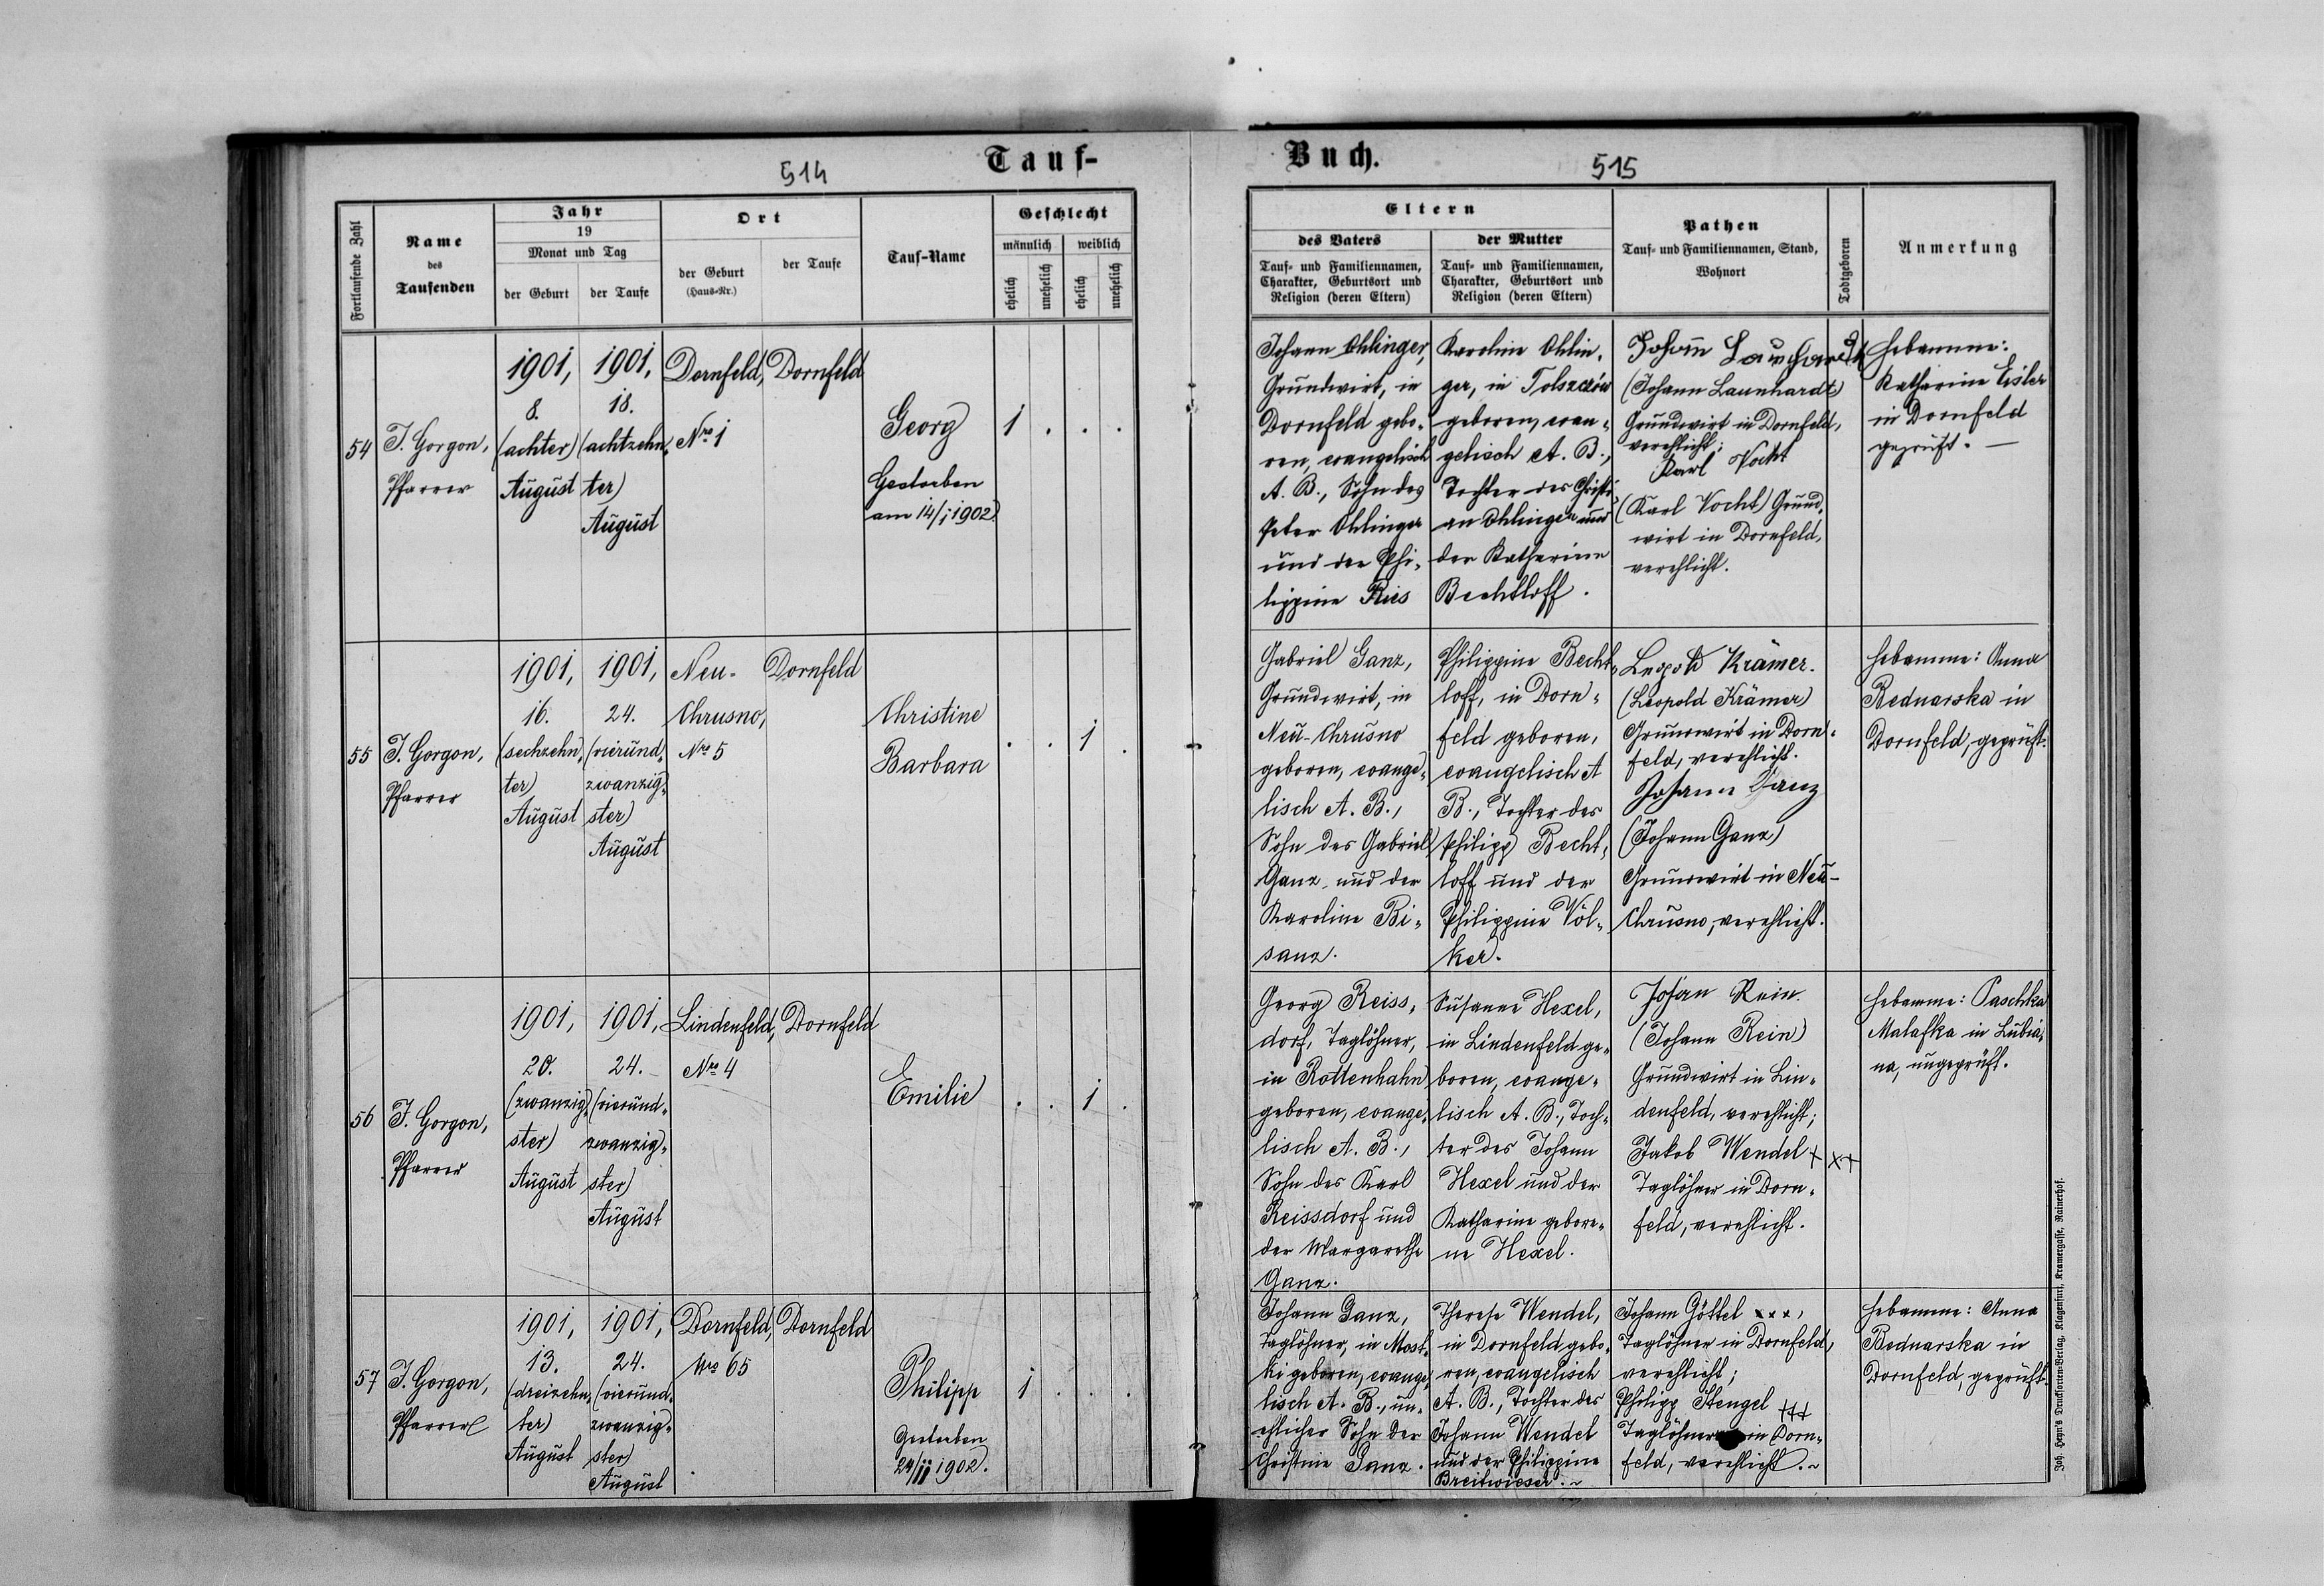 514
Tauf-
Fortlaufende Zahl
Name
des
Taufenden
Jahr
19
Monat und Tag
der Geburt
der Taufe
Ort
der Geburt
(Haus-Nr.)
der Taufe
Tauf-Name
Geschlecht
männlich
weiblich
ehelich
unehelich
ehelich
unehelich
54
J. Gorgon,
Pfarrer
1901,
8.
(achter)
August
1901,
18.
(achtzehn-
ter)
August
Dornfeld,
Nro 1
Dornfeld
Georg
Gestorben
am 14/1 1902.
1 . . .
55
J. Gorgon,
Pfarrer
1901,
16.
(sechzehn-
ter)
August
1901,
24.
(vierund-
zwanzig-
ster)
August
Neu-
Chrusno,
Nro 5
Dornfeld
Christine
Barbara
. . 1 .
56
J. Gorgon,
Pfarrer
1901,
20.
(zwanzig-
ster)
August
1901,
24.
(vierund-
zwanzig-
ster)
August
Lindenfeld,
Nro 4
Dornfeld
Emilie
. . 1 .
57
J. Gorgon,
Pfarrer
1901,
13.
(dreizehn-
ter)
August
1901,
24.
(vierund-
zwanzig-
ster)
August
Dornfeld,
Nro 65
Dornfeld
Philipp
Gestorben
24/II 1902.
1 . . .
Buch.
515
Eltern
des Vaters
Tauf- und Familiennamen,
Charakter, Geburtsort und
Religion (deren Eltern)
der Mutter
Tauf- und Familiennamen,
Charakter, Geburtsort und
Religion (deren Eltern)
Pathen
Tauf- und Familiennamen, Stand,
Wohnort
Todtgeboren
Anmerkung
Johann Ohlinger,
Grundwirt, in
Dornfeld gebo-
ren, evangelisch
A. B., Sohn des
Peter Ohlinger
und der Phi-
lippine Ries
Karoline Ohlin-
ger, in Tolszczów
geboren, evan-
gelisch A. B.,
Tochter des Christi-
an Ohlinger und
der Katharina
Bechtloff.
Johann Launhardt
(Johann Launhardt)
Grundwirt in Dornfeld,
verehlicht;
Karl Vocht
(Karl Vocht) Grund-
wirt in Dornfeld,
verehlicht.
Hebamme:
Katharine Eisler
in Dornfeld
geprüft. —
Gabriel Ganz,
Grundwirt, in
Neu-Chrusno
geboren, evange-
lisch A. B.,
Sohn des Gabriel
Ganz und der
Karoline Bi-
sanz.
Philippine Becht-
loff, in Dorn-
feld geboren,
evangelisch A
B., Tochter des
Philipp Becht-
loff und der
Philippine Völ-
ker.
Leopold Krämer.
(Leopold Krämer)
Grundwirt in Dorn-
feld, verehlicht.
Johann Ganz
(Johann Ganz)
Grundwirt in Neu-
Chrusno, verehlicht.
Hebamme: Anna
Bednarska in
Dornfeld, geprüft.
Georg Reiss-
dorf, Taglöhner,
in Rottenhahn
geboren, evange-
lisch A. B.,
Sohn des Karl
Reissdorf und
der Margarethe
Ganz.
Susanne Hexel,
in Lindenfeld ge-
boren, evange-
lisch A. B., Toch-
ter des Johann
Hexel und der
Katharine gebore-
ne Hexel.
Johann Rein.
(Johann Rein)
Grundwirt in Lin-
denfeld, verehlicht;
Jakob Wendel +++
Taglöhner in Dorn-
feld, verehlicht.
Hebamme: Paschka
Malafka in Lubia-
na, ungeprüft.
Johann Ganz,
Taglöhner, in Most-
ki geboren, evange-
lisch A. B., un-
ehlicher Sohn der
Christine Ganz.
Therese Wendel,
in Dornfeld gebo-
ren, evangelisch
A. B., Tochter des
Johann Wendel
und der Philippine
Breitwieser. ~
Johann Göttel xxx,
Taglöhner in Dornfeld,
verehlicht;
Philipp Stengel +++
Taglöhner in Dorn-
feld, verehlicht. ~
Hebamme: Anna
Bednarska in
Dornfeld, geprüft.
Joh. Heyn's Drucksorten-Verlag, Klagenfurt, Kramergasse, Rainerhof.